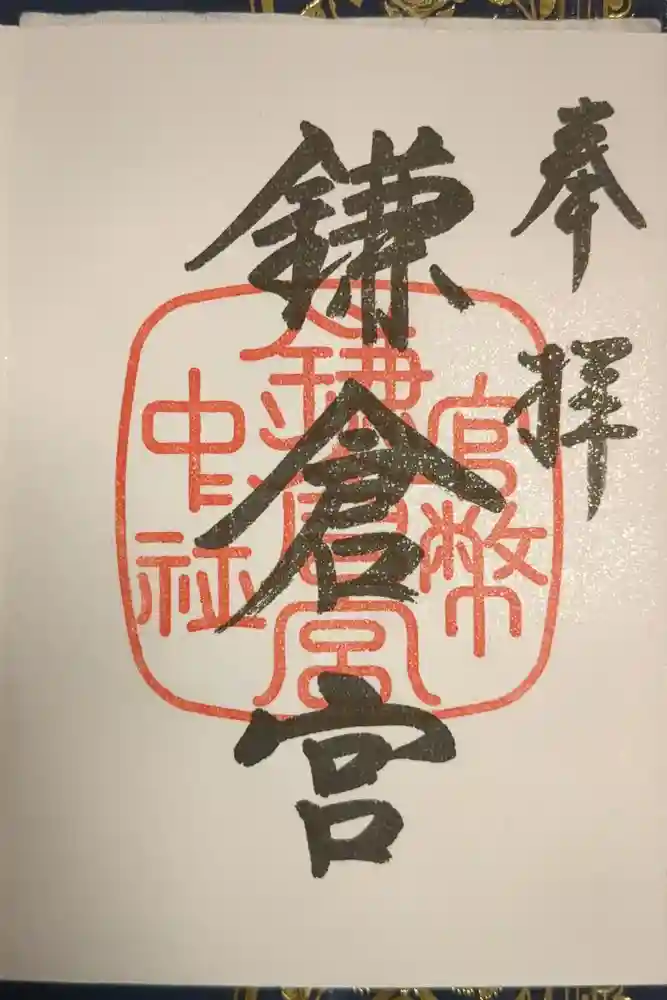 奉拝
鎌倉宮
官幣
大鎌倉宮
中社